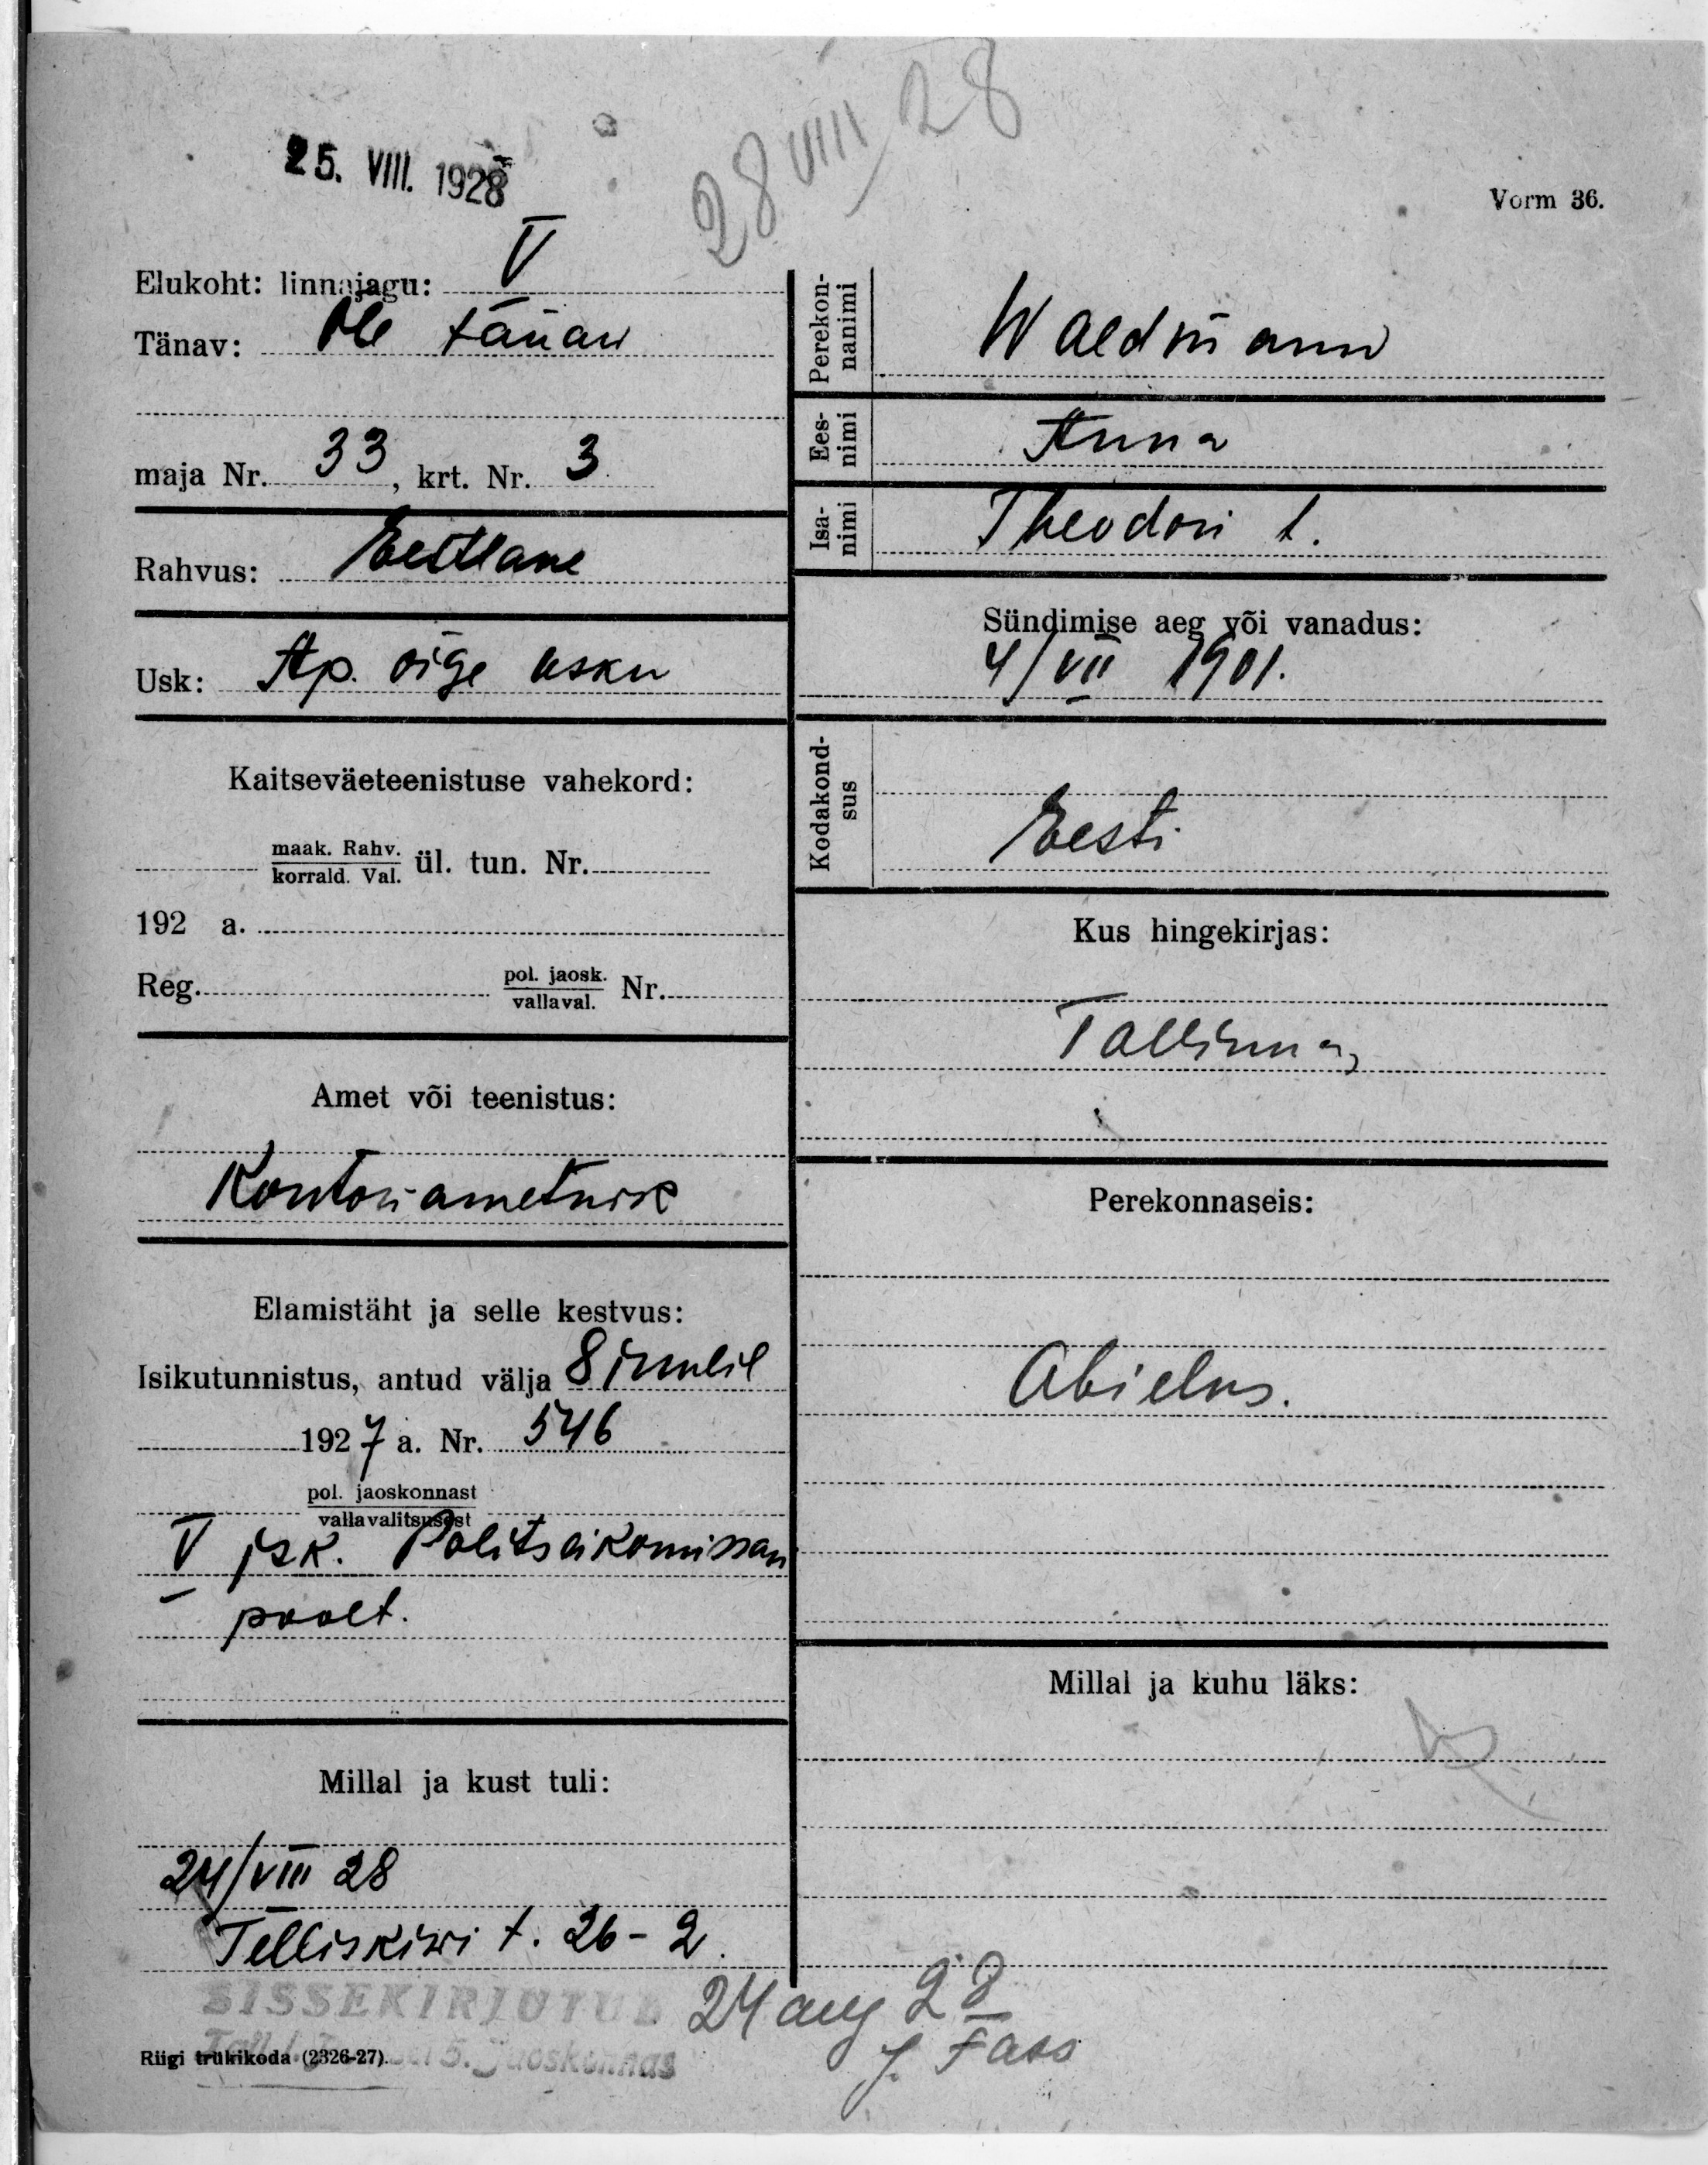 25. VIII. 1928
28 VIII 28
Vorm 36.
Elukoht: linnajagu: V
Tänav: Õle tänaw
maja Nr. 33, krt. Nr. 3
Rahvus: Eestlane
Usk: Ap. õige usku
Kaitseväeteenistuse vahekord:
maak. Rahv.
korrald. Val. ül. tun. Nr.
192 a.
Reg. pol. jaosk.
vallaval. Nr.
Amet või teenistus:
Kontoriametnik
Elamistäht ja selle kestvus:
Isikutunnistus, antud välja 8
1927 a. Nr. 546
pol. jaoskonnast
vallavalitsusest
V jsk. Politseikomissari
poolt.
Millal ja kust tuli:
24/VIII 28
Telliskiwi t. 26-2.
SISSEKIRJUTUD
5. Jaoskonnas
Riigi trükikoda (2326-27).
Perekon-
nanimi
Waldmann
Ees-
nimi
Anna
Isa-
nimi
Theodori t.
Sündimise aeg või vanadus:
4/VII 1901.
Kodakond-
sus
Eesti
Kus hingekirjas:
Tallinnas
Perekonnaseis:
Abielus.
Millal ja kuhu läks:
24 aug 28
J. Fass